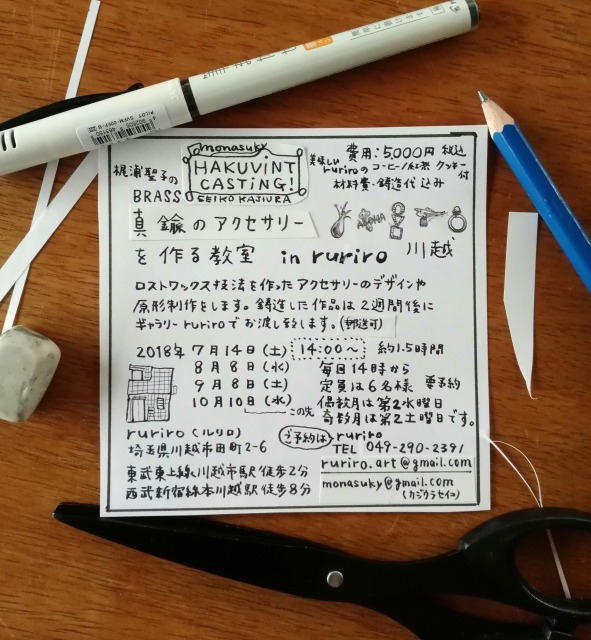 monasuky
HAKUVINT
CASTING!
SEIKO KAJIURA
梶浦聖子の
BRASS
費用:5,000円 税込
美味しい
ruriroの コーヒー/紅茶 クッキー付
材料費・鋳造代 込み
真鍮のアクセサリー
を作る教室 in ruriro 川越
ALOHA
ロストワックス技法を使ったアクセサリーのデザインや
原形制作をします。鋳造した作品は2週間後に
ギャラリーruriroでお渡し致します。(郵送可)
2018年 7月14日(土) 14:00~ 約1.5時間
8月8日(水) 毎回14時から
9月8日(土) 定員は6名様 要予約
10月10日(水) 偶数月は第2水曜日
この先 奇数月は第2土曜日です。
ruriro(ルリロ)
埼玉県川越市田町2-6
東武東上線川越市駅徒歩2分
西武新宿線本川越駅徒歩8分
ご予約は ruriro
TEL 049-290-2391
ruriro.art@gmail.com
monasuky@gmail.com
(カジウラセイコ)